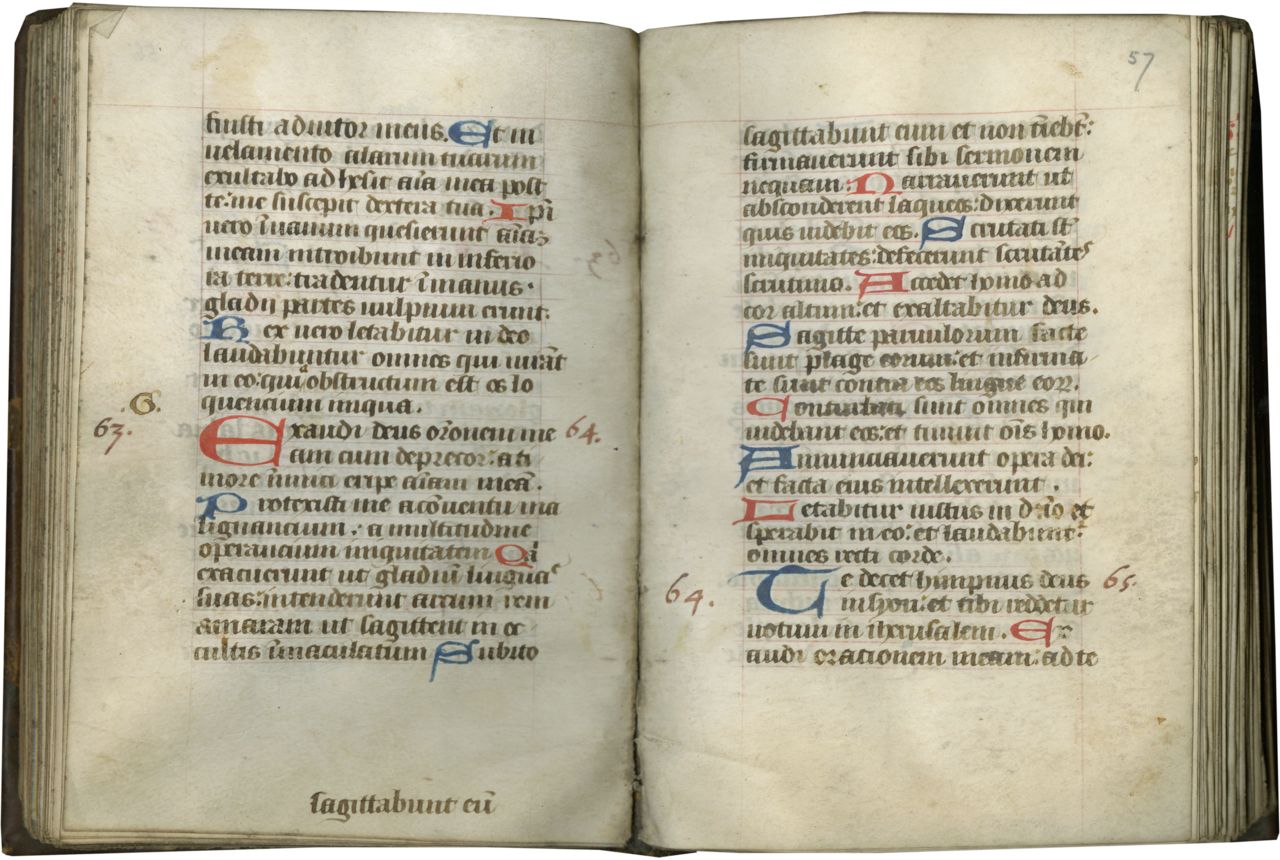 fuisti adiutor meus. Et in
uelamento alarum tuarum
exultabo ad hesit aīa mea post
te: me suscepit dextera tua. Ipī
uero īuanum quesierunt aīaꝫ
meam introibunt in inferio
ra terre: tradentur īmanus
gladij partes uulpium erunt.
Rex uero letabitur in deo
laudabuntur omnes qui iurāt
in eo: quia obstructum est os lo
quencium iniqua.
.G.
63. Exaudi deus orōnem me 64.
am cum deprecor: a ti
more inimici eripe aīam meā.
Protexisti me a cōuentu ma
lignancium: a multitudine
operancium iniquitatem Qꝛ
exacuerunt ut gladiū lingua⁹
suas: intenderunt arcum rem
amaram ut sagittent in oc
cultis īmaculatum Subito
sagittabunt eū
57
sagittabunt eum et non tīebt̄:
firmauerunt sibi sermonem
nequam: Narrauerunt ut
absconderent laqueos: dixerunt
quis uidebit eos. Scrutati st̄
iniquitates: defecerunt scrutātes
scrutinio. Accedet homo ad
cor altum: et exaltabitur deus.
Sagitte paruulorum facte
sunt plage eorum: et infirma
te sunt contra eos lingue eoꝝ.
Conturbati sunt omnes qui
uidebant eos: et timuit oīs homo.
Annunciauerunt opera dei:
et facta eius intellexerunt.
Letabitur iustus in dn̄o et
sperabit in eo: et laudabunt᷑
omnes recti corde.
64. Te decet himpnus deus 65.
in syon: et tibi reddetur
uotum in iherusalem. Ex
audi orationem meam: ad te